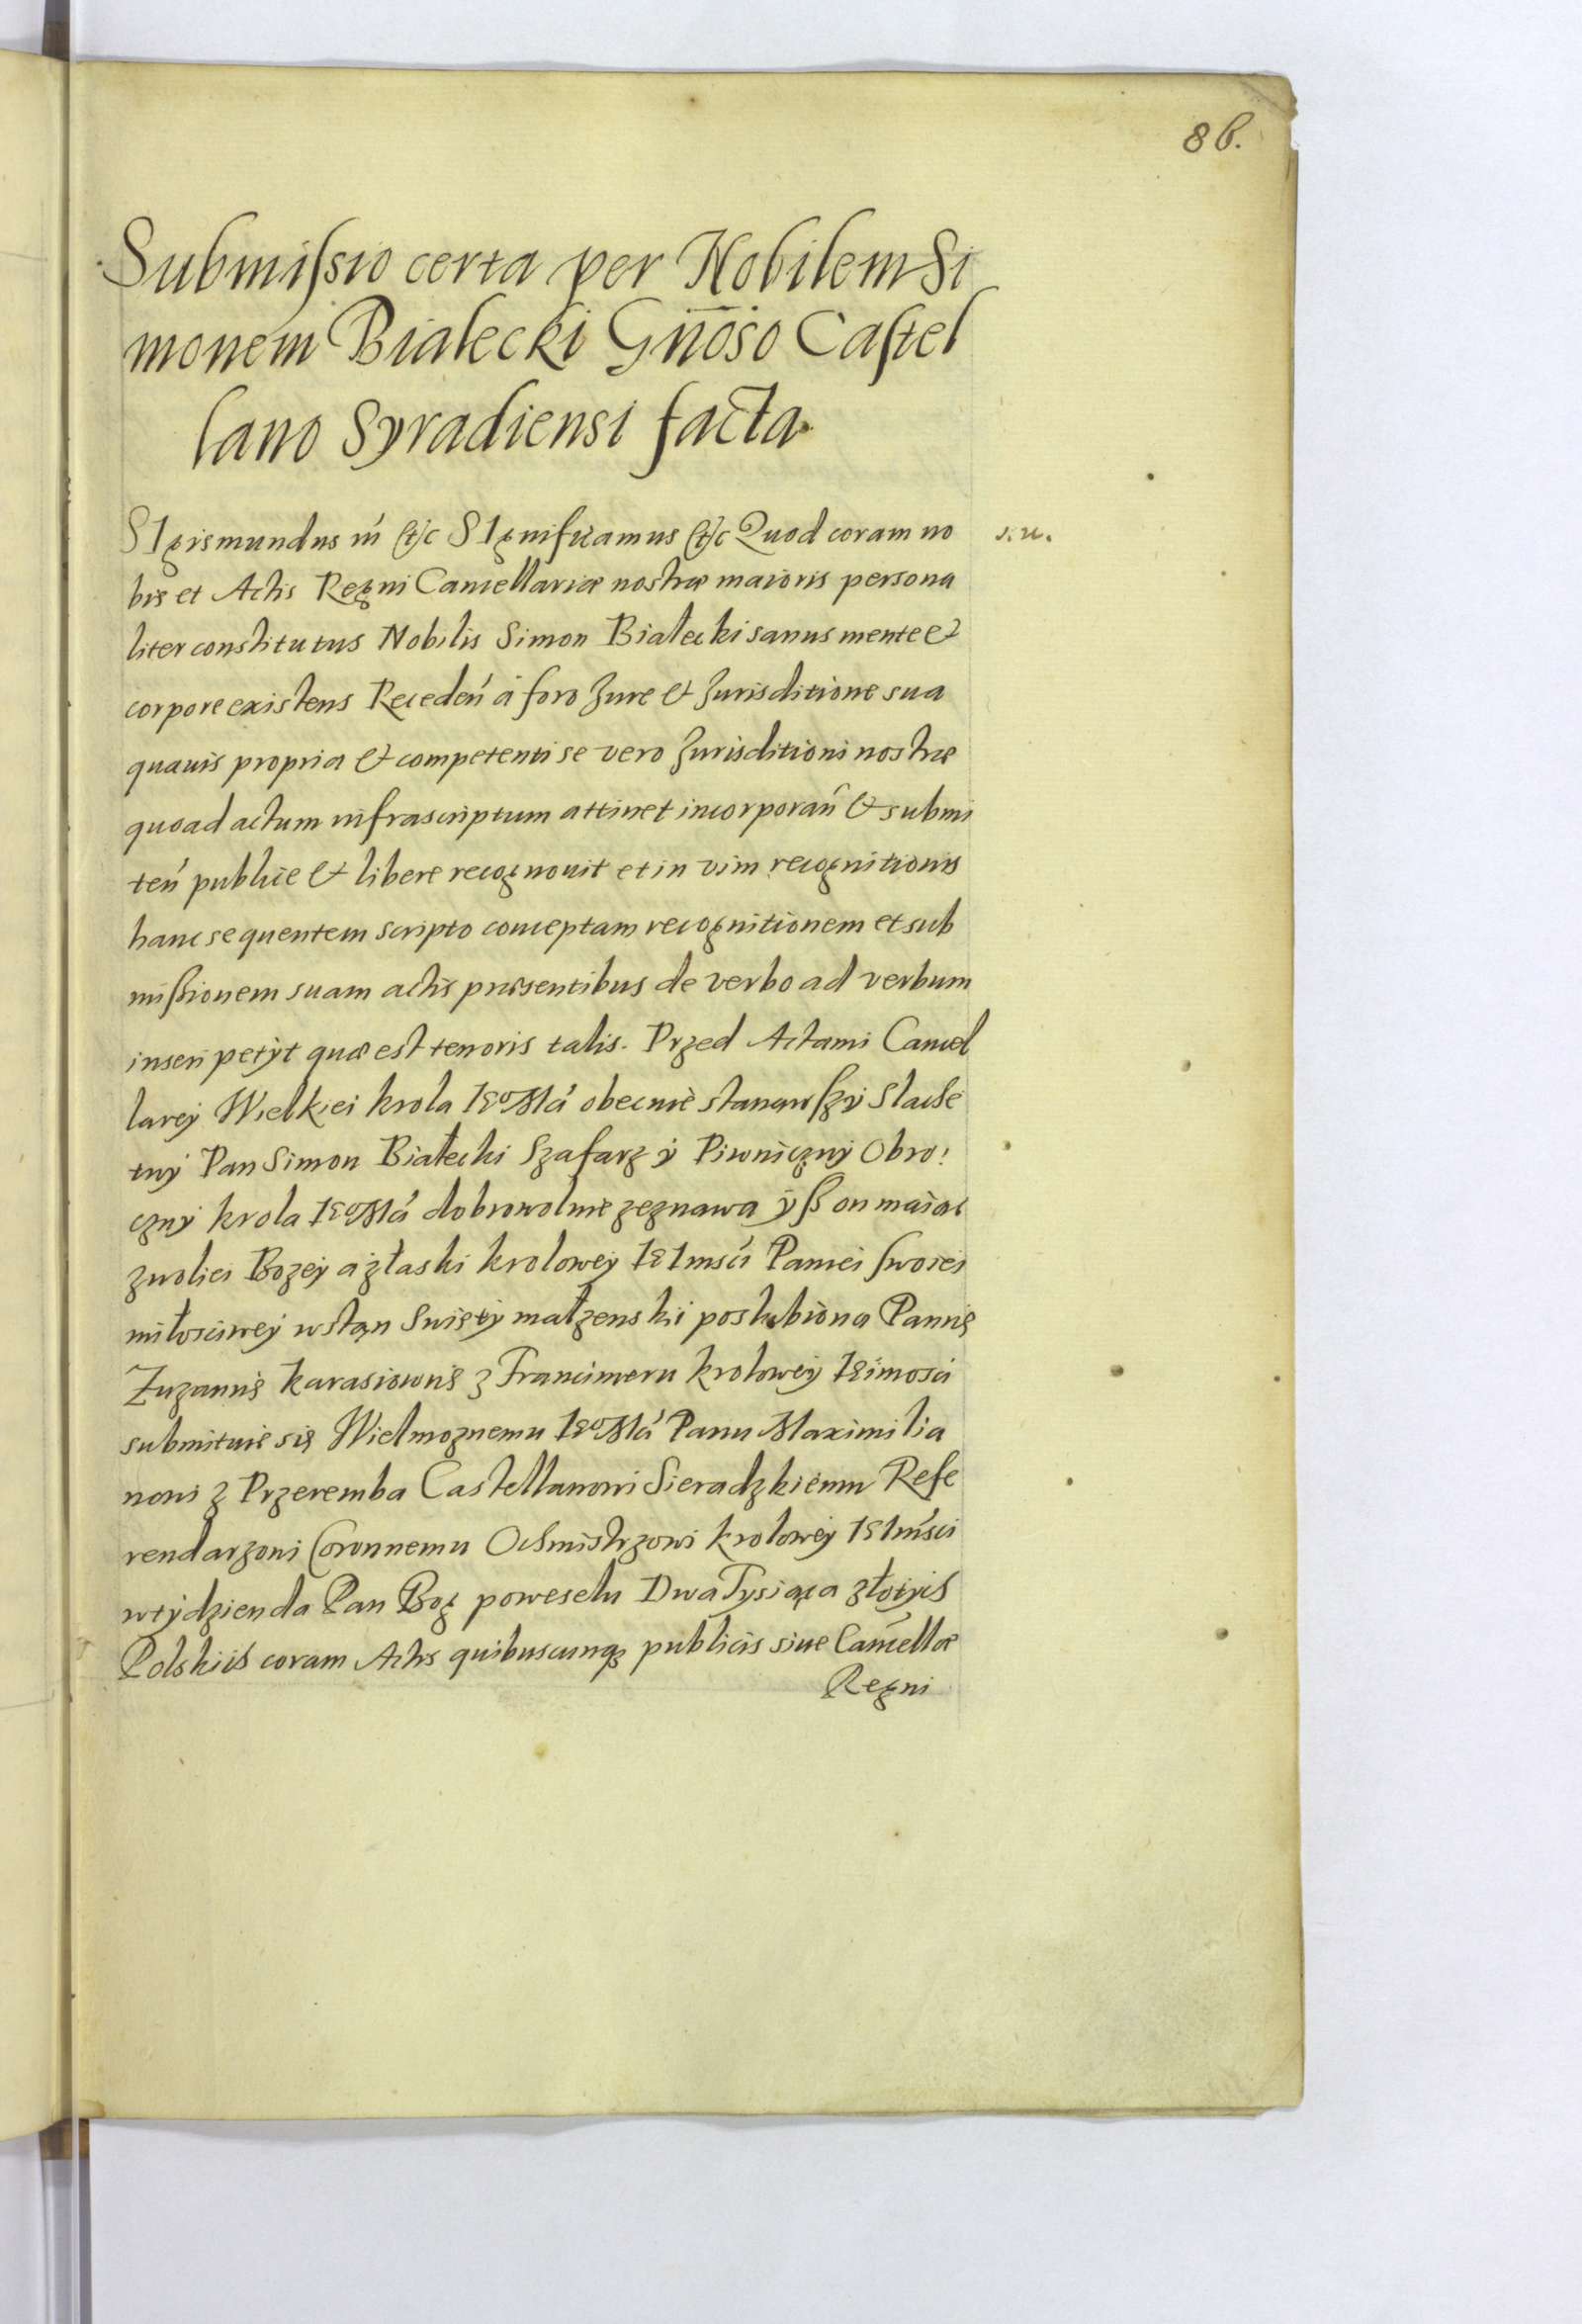 86.
Submissio certa per Nobilem Si
monem Białecki Gn̄oso Castel
lano Syradiensi facta
SIgismundus iii etc SIgnificamus etc Quod coram no
s. u.
bis et Actis Regni Cancellariæ nostræ maioris persona
liter constitutus Nobilis Simon Białecki sanus mente et
corpore existens Receden̄ à foro Jure et Jurisditione sua
quauis propria et competenti se vero Jurisditioni nostræ
quoad actum infrascriptum attinet incorporan̄ et submi
ten̄ publice et libere recognouit et in vim recognitionis
hanc sequentem scripto conceptam recognitionem et sub
missionem suam actis præsentibus de verbo ad verbum
inseri petÿt quæ est tenoris talis. Przed Actami Cancel
larej Wielkiei krola Ieo Mći obecnie stanąwszÿ Slache
tnÿ Pan Simon Białecki Szafarz ÿ Piwnicznÿ Obro:
cznÿ krola Ieo Mći dobrowolnie zeznawa ÿß on maiąc
zwoliei Bozeÿ a złaski kroloweÿ IeImsći Paniei swoiei
miłosciweÿ wstąn Swiętÿ małzenski poslubiona Pannę
Zuzannę karasiownę z Francimeru kroloweÿ Ieimosci
submituie się Wielmoznemu Ieo Mći Panu Maximilia
nowi z Przeremba Castellanowi Sieradzkiemu Refe
rendarzowi Coronnemu Ochmistrzowi kroloweÿ IeImsci
wtÿdzien da Pan Bog poweselu Dwa Tysiąca złotÿch
Polskich coram Actis quibuscunq́ publicis siue Cancellæ
Regni